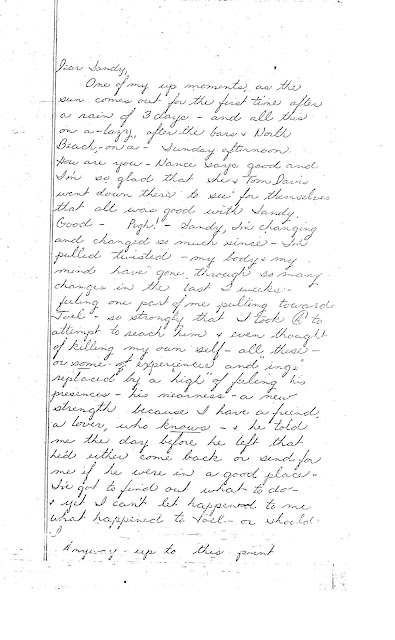 Dear Sandy,
One of my up moments, as the
sun comes out for the first time after
a rain of 3 days - and all this
on a - lazy, after the bars & North
Beach - on a - Sunday afternoon.
How are you - Nance says good and
I'm so glad that she & Tom Davis
went down there to see for themselves
that all was good with Sandy.
Good - Pugh! - Sandy, I'm changing
and changed so much since - I'm
pulled twisted - my body & my
mind have gone through so many
changes in the last 2 weeks -
feeling one part of me pulling toward
Joel - so strongly that I took @ to
attempt to reach him & even thought
of killing my own self - all these -
or some of experiences and "ings"
replaced by a "high" of feeling his
presences - his nearness - a new
strength because I have a friend,
a lover, who knows - & he told
me the day before he left that
he'd either come back or send for
me if he were in a good place -
I've got to find out what to do -
& yet I can't let happened to me
what happined to Joel - or should
I
Anyway - up to this point